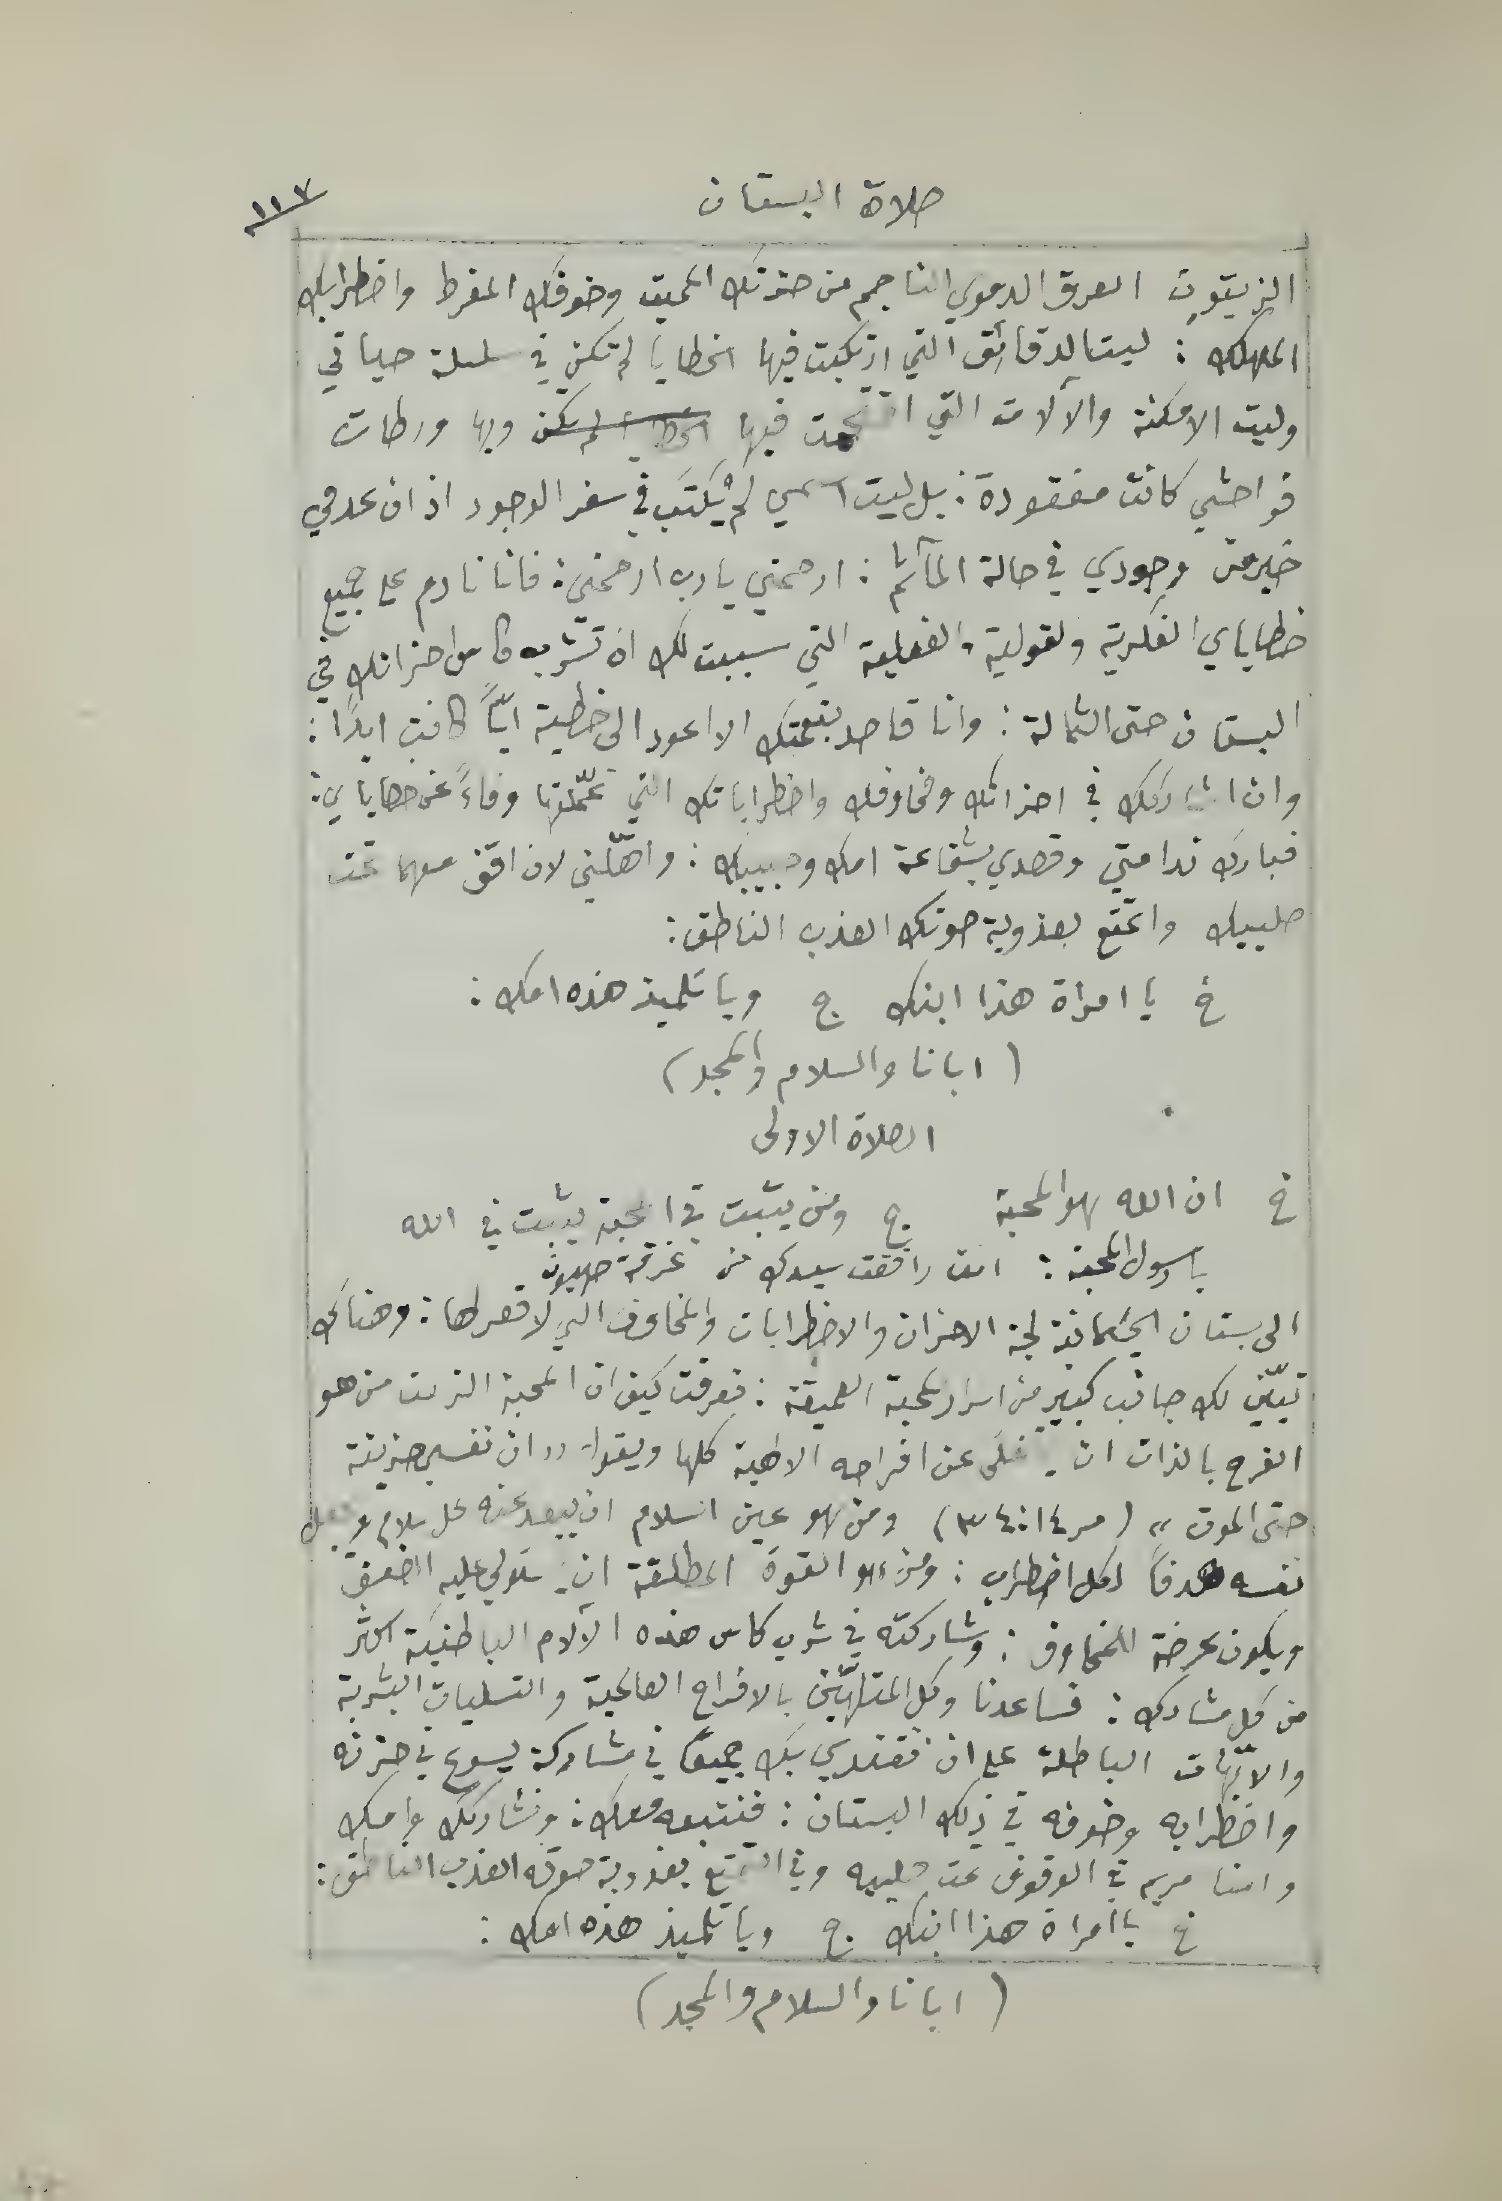 صلاة البستان
١١٧
الزيتون العرق الدموي الناجم من حزنك المميت وخوفك المفرط واضطرابك
المهلك : ليت الدقائق التي ارتكبت فيها الخطايا لم تكن في سلسلة حياتي
وليت الامكنة والآلات التي اقتحمت فيها لم يكن وبها ورطات
فواحشي كانت مفقودة : بل ليت اسمي لم يُكتَب في سفر الوجود اذ ان عدمي
خير من وجودي في حالة المآثم : ارحمني يا رب ارحمني : فانا نادم على جميع
خطاياي الفكرية والقولية والفعلية التي سببت لك ان تشرب كاس احزانك في
البستان حتى الثمالة : وانا قاصد بنعمتك الا اعود الى خطية ايّاً كانت ابدًا :
وان اشاركك في احزانك ومخاوفك واضطراباتك التي تحمّلتها وفاءً عن خطاياي :
فبارك ندامتي وقصدي بشفاعة امك وحبيبك : واهّلني لان اقف معهما تحت
صليبك واتمتّع بعذوبة صوتك العذب الناطق :
خ يا امراة هذا ابنك ج ويا تلميذ هذه امك :
( ابانا والسلام والمجد )
الصلاة الاولى
خ ان الله هو المحبة ج ومن يثبت في المحبة يثبت في الله
يا رسول المحبة : انت رافقت سيدك من غرفة صهيون
الى بستان الجسمانية لجة الاحزان والاضطرابات والمخاوف التي لا قعر لها : وهناك
تبيّن لك جانب كبير من اسرار المحبة العميقة : فعرفت كيف ان المحبة الزمت من هو
الفرح بالذات ان يتخلّى عن افراحه الالهية كلها ويقول " ان نفسي حزينة
حتى الموت " ( مر ١٤ : ٣٤ ) ومن هو عين السلام ان يبعد عنه كل سلام ويجعل
نفسه هدفاً لكل اضطراب : ومن هو القوة المطلقة ان يستولي عليه الضعف
ويكون عرضة للمخاوف : وشاركته في شرب كاس هذه الآلام الباطنية اكثر
من كل مشارك : فساعدنا وكل المتلهّين بالافراح العالمية والتسليات البشرية
والالهّات الباطلة على ان نقتدي بك جميعًا في مشاركة يسوع في حزنه
واضطرابه وخوفه في ذلك البستان : فنتبعه معك : ونشاركك وامك
وامنا مريم في الوقوف تحت صليبه وفي التمتع بعذوبة صوته العذب الناطق :
خ يا امراة هذا ابنك ج ويا تلميذ هذه امك :
( ابانا والسلام والمجد )